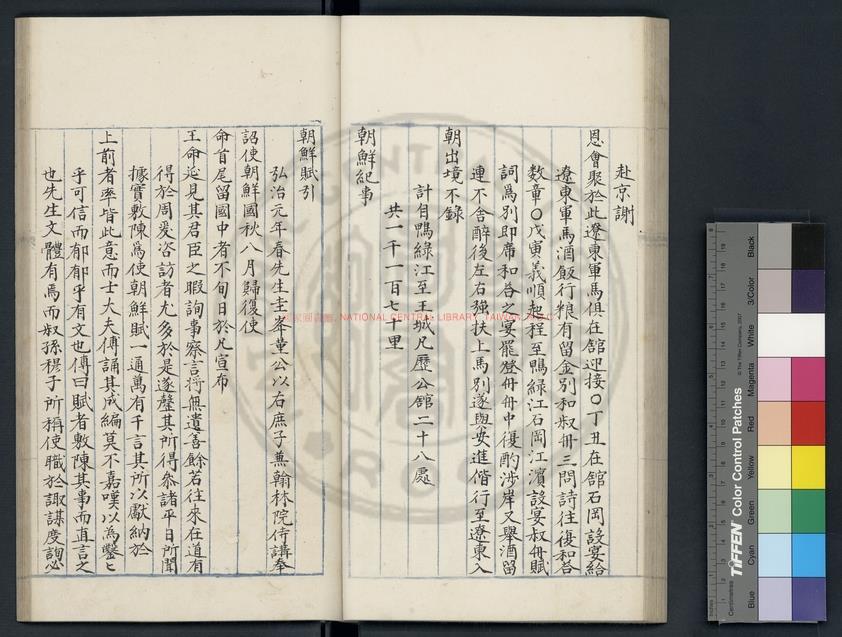 赴京謝
恩會聚於此遼東軍馬俱在舘迎接〇丁丑在舘石岡設宴給
遼東軍馬酒飯行粮有留金別和叔冊三問詩往復和荅
數章〇戊寅義順起程至鴨綠江石岡江濱設宴叔冊賦
詞爲別即席和荅之宴罷登冊冊中復酌涉岸又舉酒留
連不舍醉後左右強扶上馬別遂與安進偕行至遼東入
朝出境不錄
計自鴨綠江至王城凡歷公舘二十八處
共一千一百七十里
朝鮮紀事
朝鮮賦引
弘治元年春先生圭峯董公以右庶子兼翰林院侍講奉
詔使朝鮮國秋八月歸復使
命首尾留國中者不旬日於凡宣布
王命延見其君臣之暇詢事察言將無遺善餘若往來在道有
得於周爰咨訪者尤多於是遂罄其所得叅諸平日所聞
據實敷陳爲使朝鮮賦一通萬有千言其所以獻納於
上前者率皆此意而士大夫傳誦其成編莫不嘉嘆以爲鑿七
乎可信而郁郁乎有文也傳曰賦者敷陳其事而直言之
也先生文體有焉而叔孫穆子所稱使職於諏謀度詢必
國家圖書館 NATIONAL CENTRAL LIBRARY, TAIWAN
TIFFEN Color Control Patches
© The Tiffen Company, 2007
Centimetres
Inches
Blue
Cyan
Green
Yellow
Red
Magenta
White
3/Color
Black